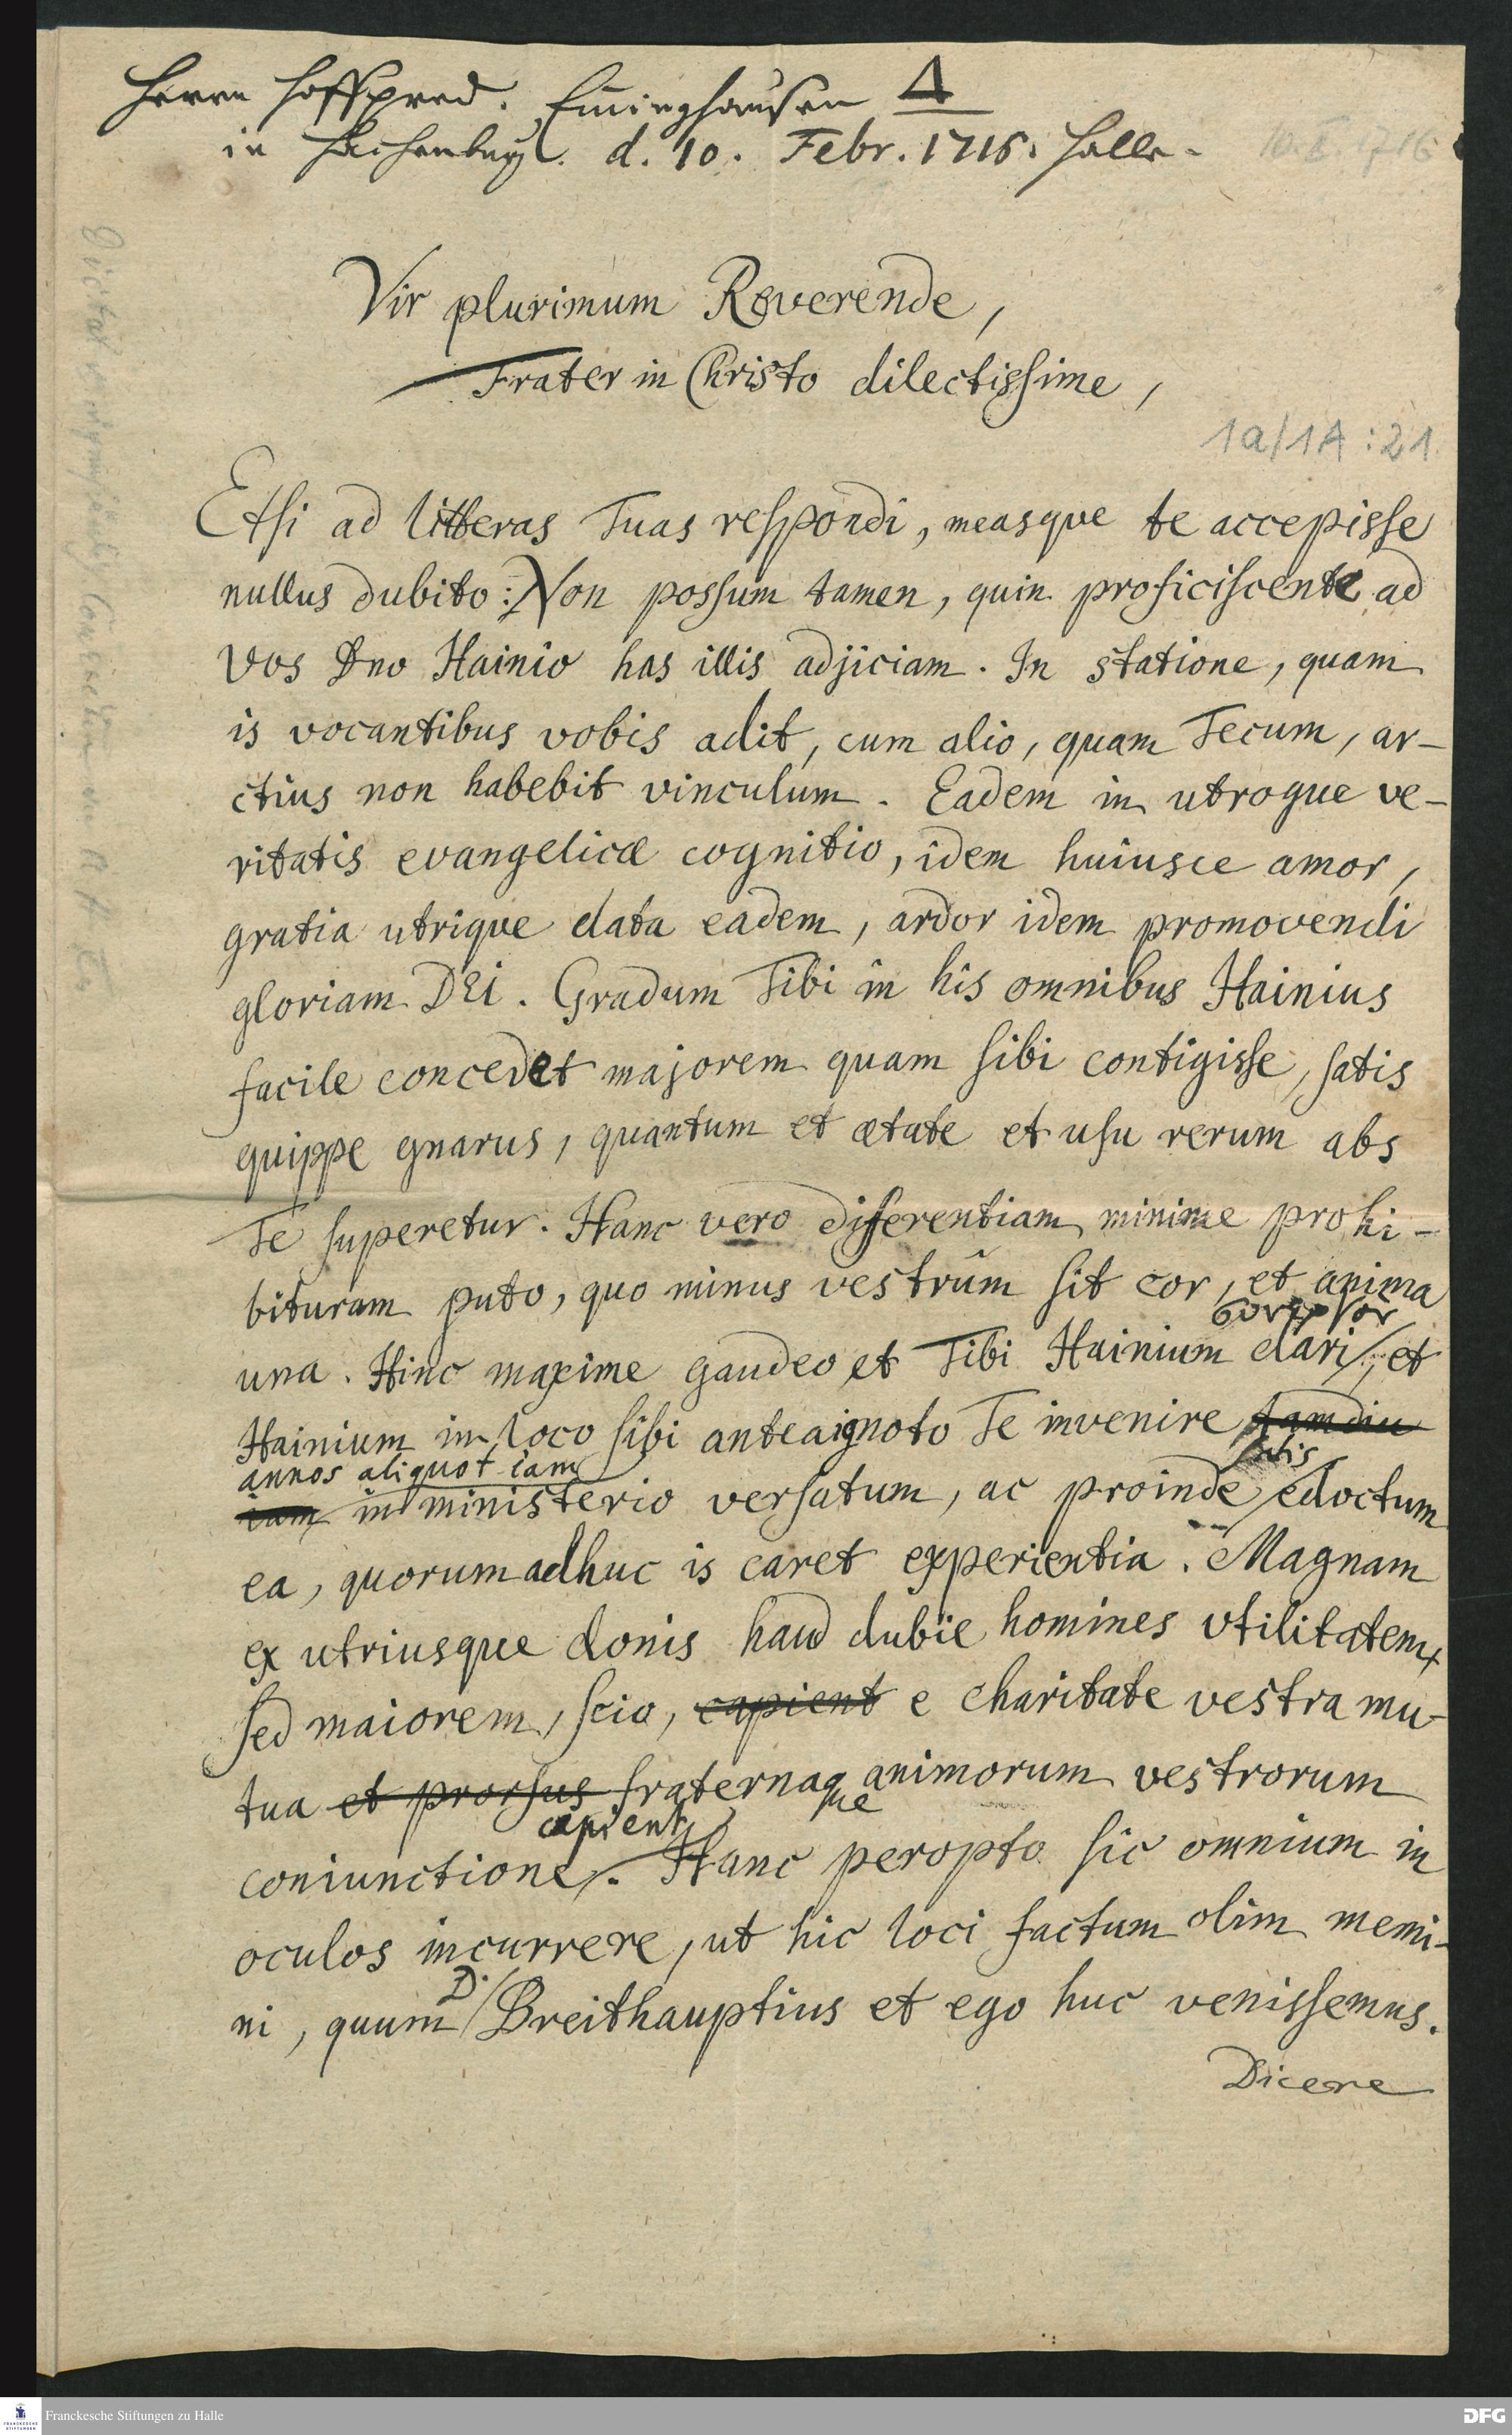 Herrn Hoffpred. Eminghausen Δ
in Hachenburg. d. 10. Febr. 1716. Halle.
10. II. 1716
Vir plurimum Reverende,
Frater in Christo dilectissime,
1a/1A : 21
Etsi ad litteras Tuas respondi, measque te accepisse
nullus dubito: Non possum tamen, quin proficiscente ad
Vos Dno Hainio has illis adjiciam. In statione, quam
is vocantibus vobis adit, cum alio, quam Tecum, ar-
ctius non habebit vinculum. Eadem in utroque ve-
ritatis evangelicæ cognitio, idem huiusce amor,
gratia utrique data eadem, ardor idem promovendi
gloriam DEI. Gradum Tibi in his omnibus Hainius
facile concedet majorem quam sibi contigisse, satis
quippe gnarus, quantum et ætate et usu rerum abs
Te superetur. Hanc vero diferentiam minime prohi-
bituram puto, quo minus vestrûm sit cor, et anima
una. Hinc maxime gaudeo et Tibi Hainium dari, et
Hainium in loco sibi antea ignoto Te invenire tamdiu
annos aliquot iam
iam in ministerio versatum, ac proinde satis edoctum
ea, quorum adhuc is caret experientia. Magnam
ex utriusque donis haud dubie homines utilitatem,
sed maiorem, scio, capient e charitate vestra mu-
tua et prorsus fraternaque animorum vestrorum
capient
coniunctione. Hanc peropto sic omnium in
oculos incurrere, ut hic loci factum olim memi-
ni, quum D. Breithauptius et ego huc venissemus.
Dicere
Franckesche Stiftungen zu Halle
DFG